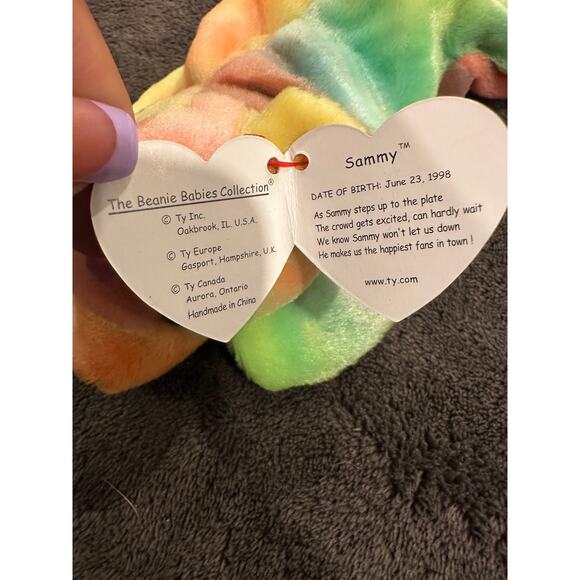 The Beanie Babies Collection®
© Ty Inc.
Oakbrook, IL. U.S.A.
© Ty Europe
Gasport, Hampshire, U.K.
© Ty Canada
Aurora, Ontario
Handmade in China
Sammy™
DATE OF BIRTH: June 23, 1998
As Sammy steps up to the plate
The crowd gets excited, can hardly wait
We know Sammy won't let us down
He makes us the happiest fans in town !
www.ty.com